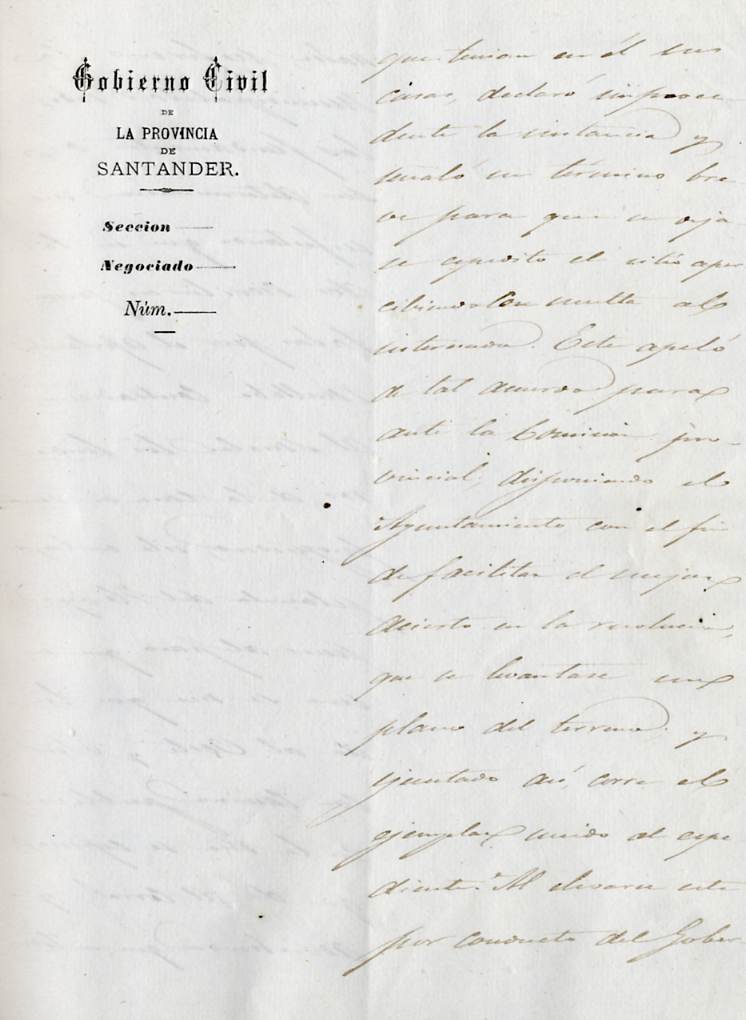 Gobierno Civil
DE
LA PROVINCIA
DE
SANTANDER.
Seccion
Negociado
Núm.
que tenian en él sus
casas, declaró improce-
dente la instancia y
señaló un término bre-
ve para que se deja-
se espedito el sitio aper
cibiendo con multa al
interesado. Este apeló
de tal acuerdo para
ante la Comision pro-
vincial, disponiendo el
Ayuntamiento con el fin
de facilitar el mejor
acierto en la resolucion,
que se levantase un
plano del terreno y
ejecutado así, corre el
ejemplar unido al espe
diente. Al elevarse este
por conducto del Gober